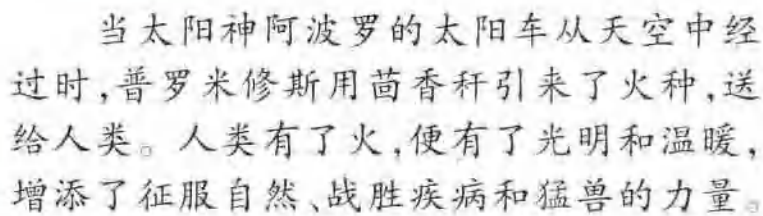 当太阳神阿波罗的太阳车从天空中经
过时,普罗米修斯用茴香秆引来了火种,送
给人类。人类有了火,便有了光明和温暖,
增添了征服自然、战胜疾病和猛兽的力量。